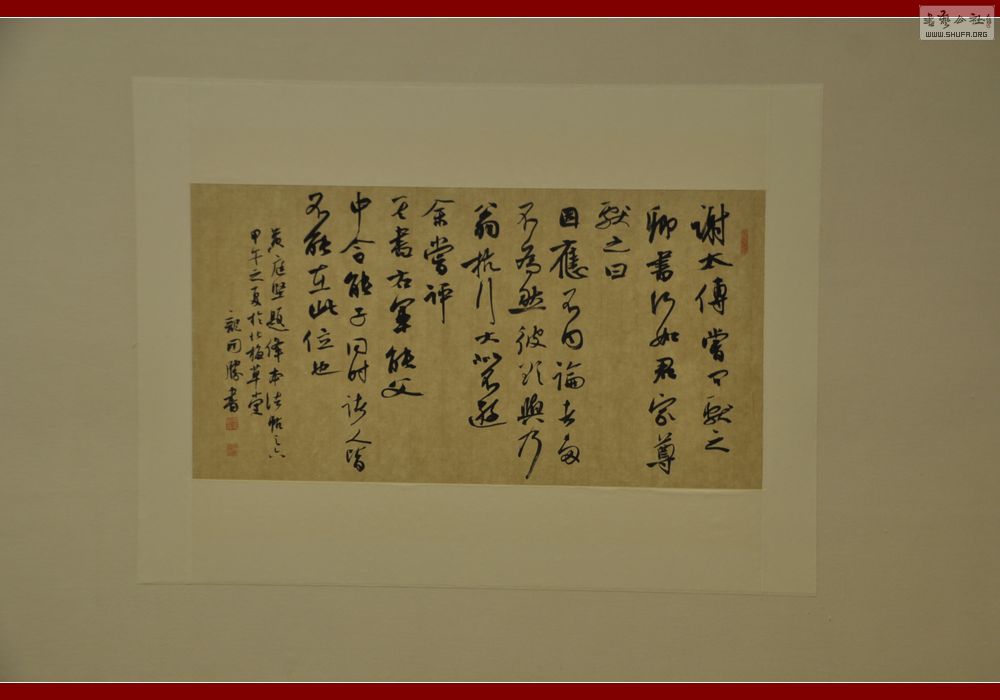 谢太傅尝问献之
卿书何如君家尊
献之曰
固应不同论者多
不为然彼欲与乃
翁抗行大似不逊
余尝评
其书右军能父
中令能子同时诸人皆
不能在此位也
黄庭坚题绛本法帖之六
甲午之夏于北梅草堂
同胜书
书艺公社
WWW.SHUFA.ORG